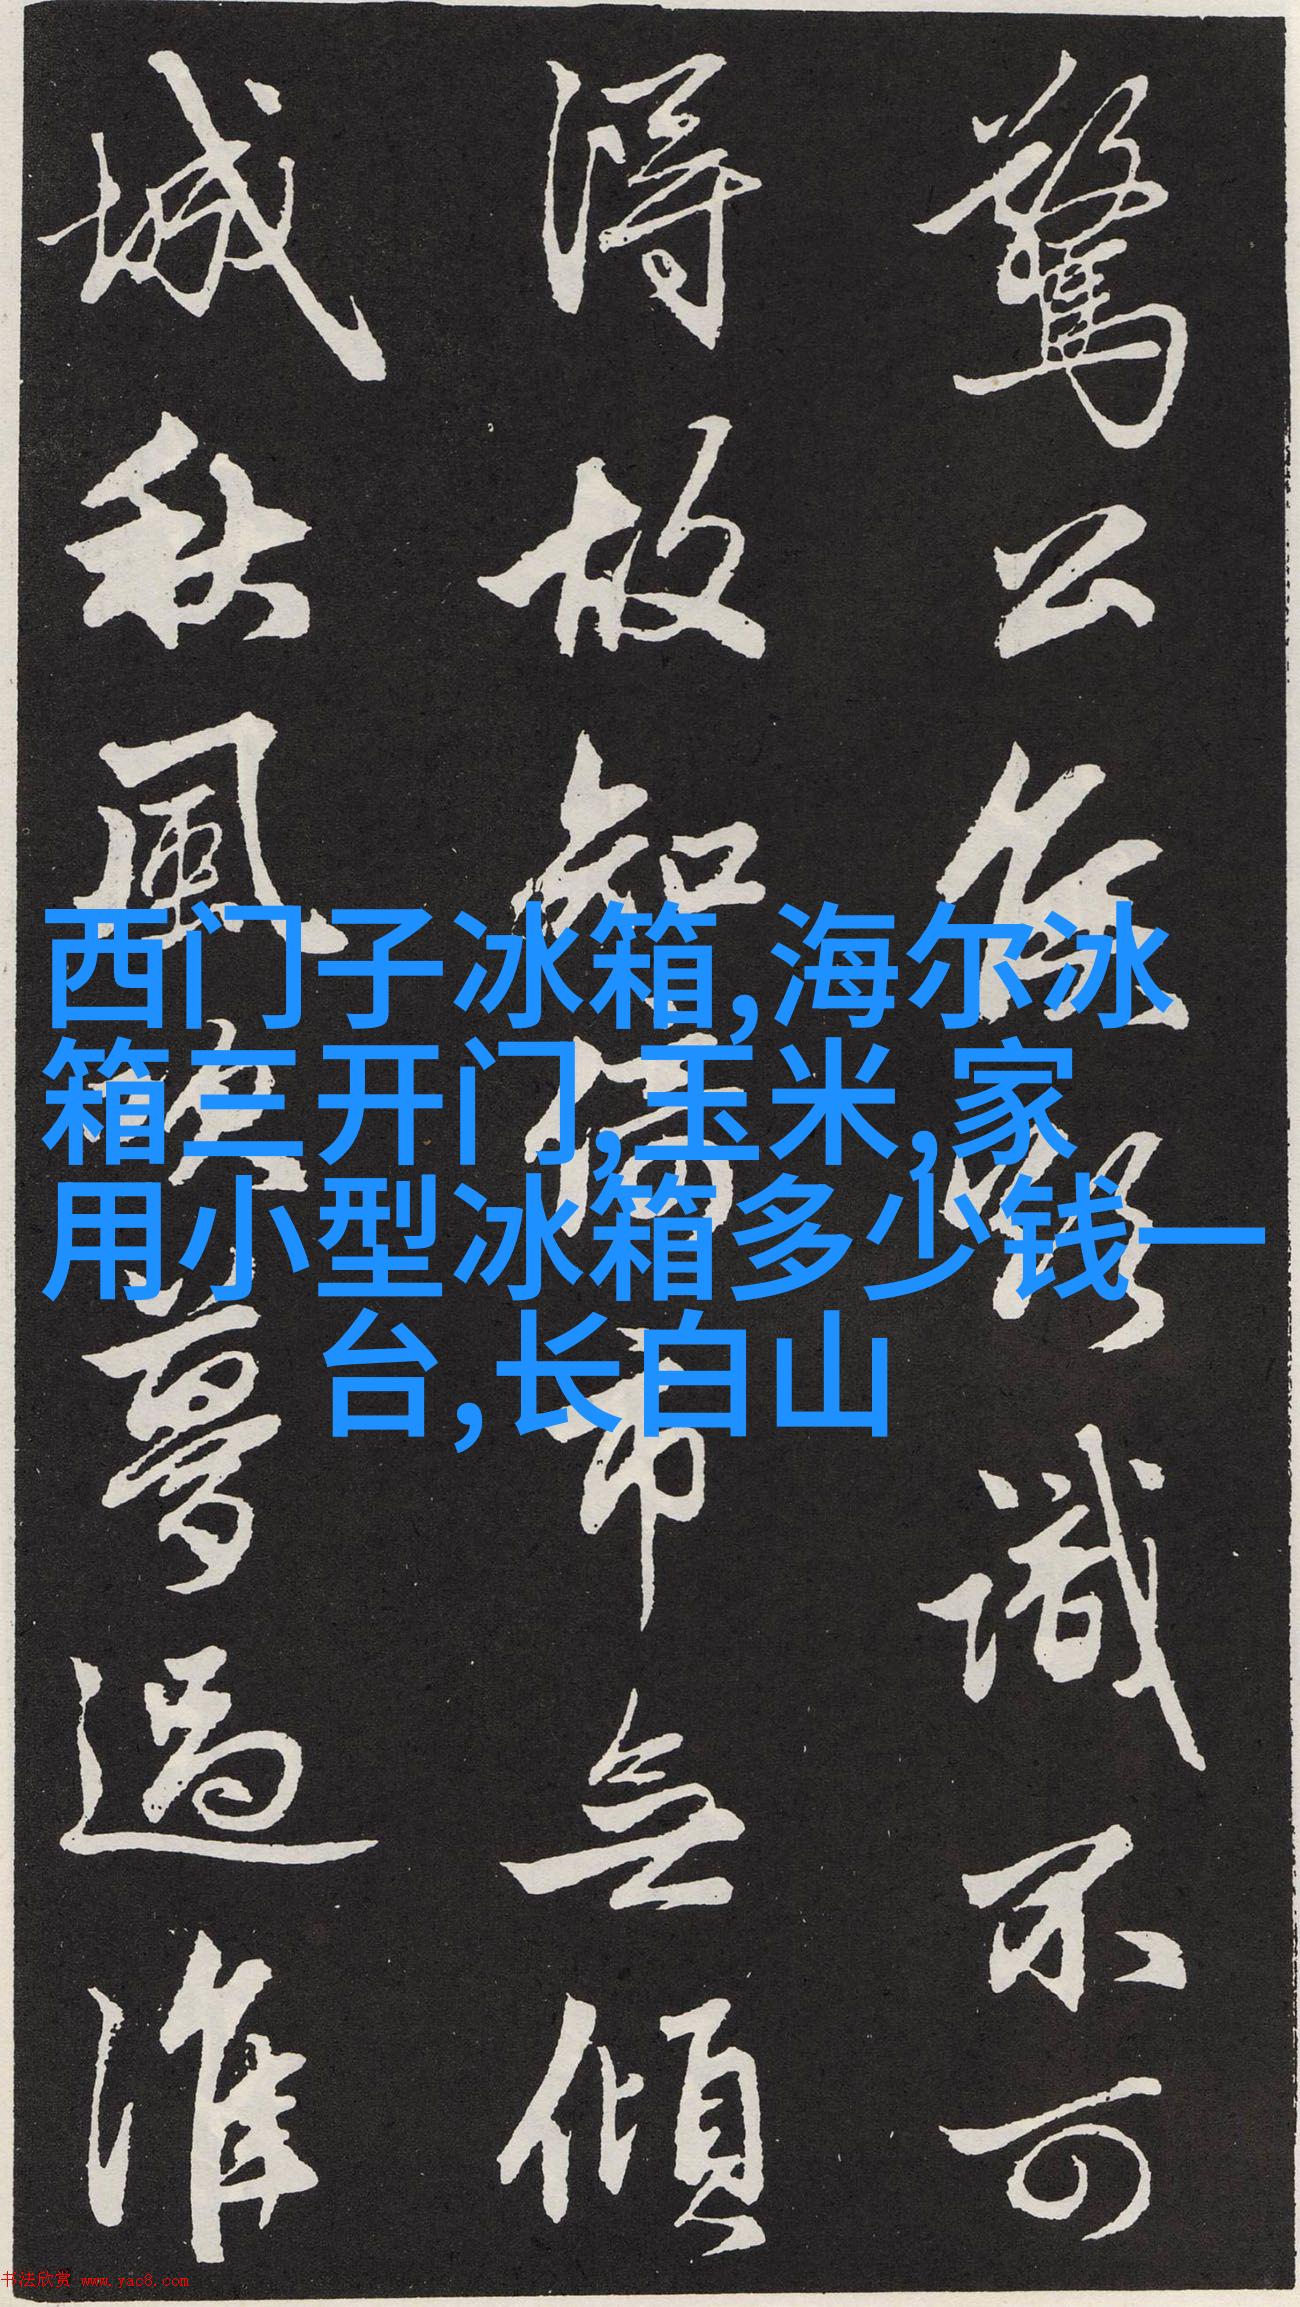 驚公識不可
得故知倚市無傾
城秋風夢過淮
西门子冰箱,海尔冰
箱三开门,玉米,家
用小型冰箱多少钱一
台,长白山
书法欣赏 www.yac8.com